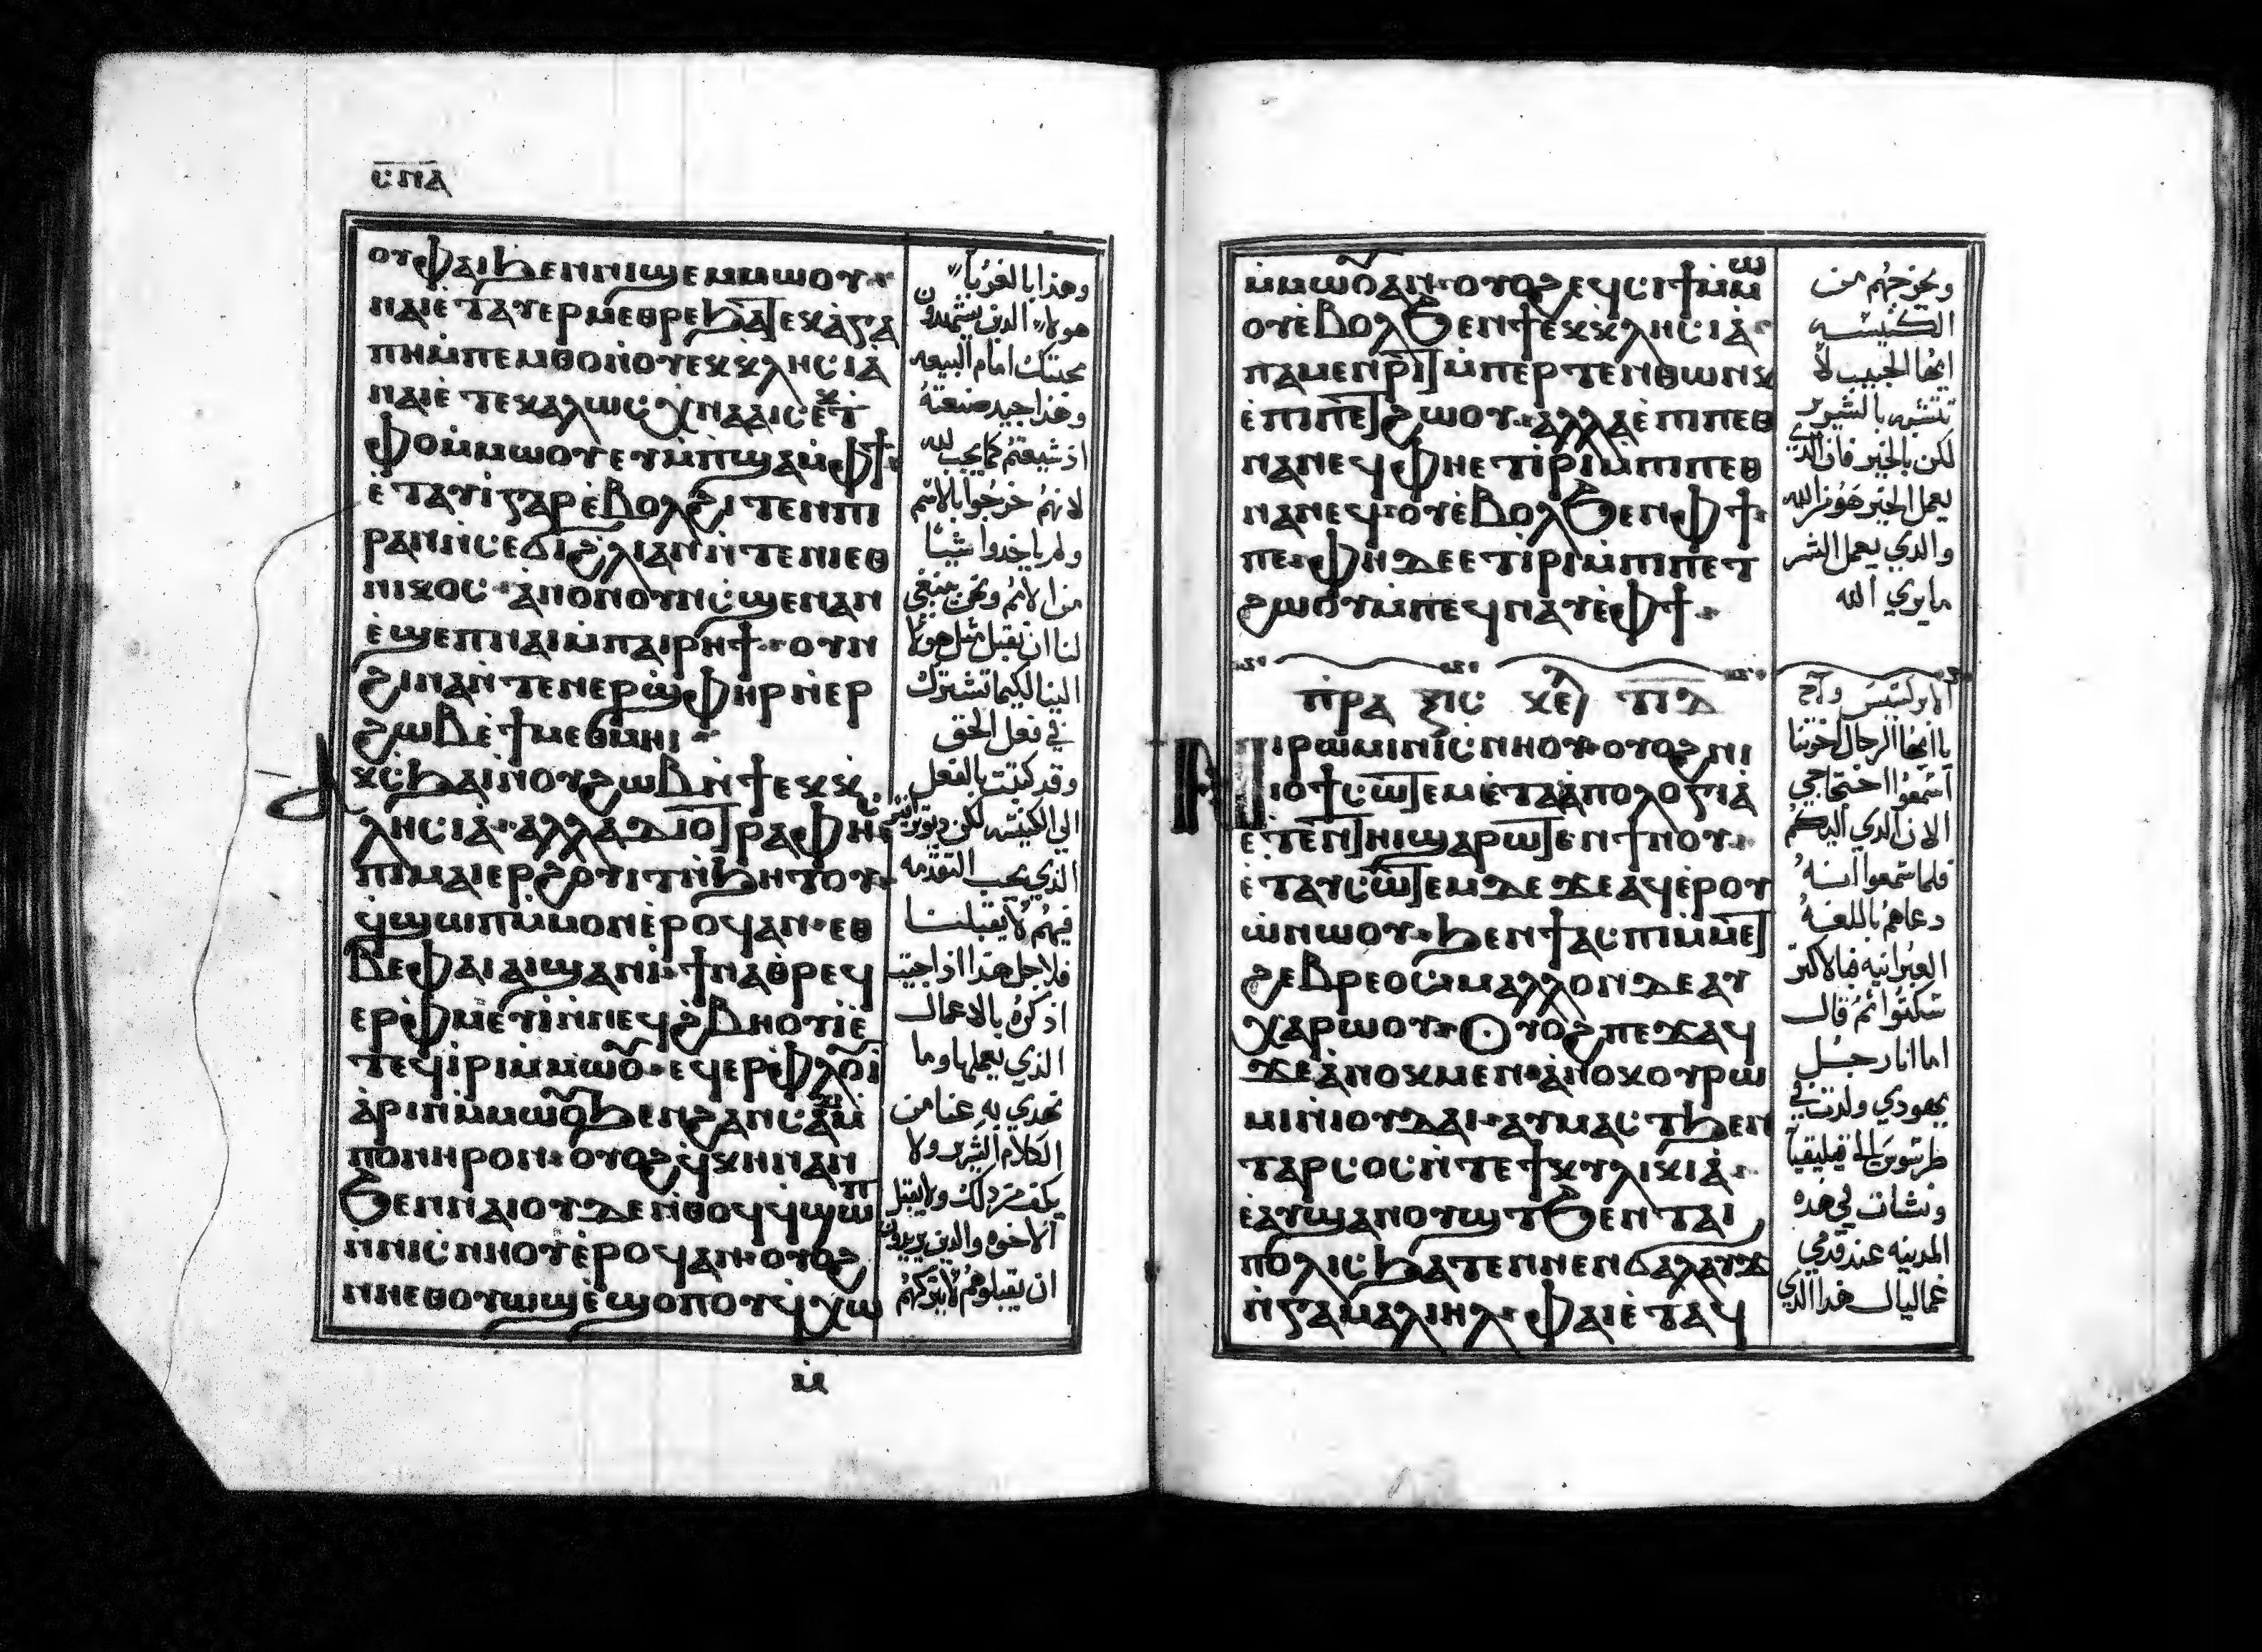 ⲥⲡⲁ
ⲟⲩⲫⲁⲓϧⲉⲛⲛⲓϣⲉⲙⲙⲱⲟⲩ·
ⲛⲁⲓⲉ̀ⲧⲁⲩⲉⲣⲙⲉⲑⲣⲉϧⲁ]ⲉⲕⲁⲅⲁ
ⲡⲏⲙ̀ⲡⲉⲙⲑⲟⲛ̀ⲟⲩⲉⲕⲕⲗⲏⲥⲓⲁ̀
ⲛⲁⲓⲉ̀ⲧⲉⲕⲁⲗⲱⲥⲭⲛⲁⲁⲓⲥⲉ̀ⲕⲧ
ⲫⲟⲙ̀ⲙⲱⲟⲩⲉⲩⲙ̀ⲡϣⲁⲙ̀ⲫϯ·
ⲉ̀ⲧⲁⲩⲓ̀ⲅⲁⲣⲉ̀ⲃⲟⲗϩⲓⲧⲉⲛⲡⲓ
ⲣⲁⲛⲛ̀ⲥⲉϭⲓϩⲗⲓⲁⲛⲛ̀ⲧⲉⲛⲓⲉⲑ
ⲛⲓⲕⲟⲥ·ⲁ̀ⲛⲟⲛⲟⲩⲛⲥ̀ϣⲉⲛⲁⲛ
ⲉ̀ϣⲉⲡⲛⲁⲓⲙ̀ⲡⲁⲓⲣⲏϯ·ⲟⲩⲛ
ϩⲓⲛⲁⲛ̀ⲧⲉⲛⲉⲣϣ̀ⲫⲏⲣⲛ̀ⲉⲣ
ϩⲱⲃⲉ̀ϯⲙⲉⲑⲙⲏⲓ
ⲁⲕⲥ̀ϧⲁⲓⲛ̀ⲟⲩϩⲱⲃⲛ̀ϯⲉⲕⲕ
ⲗⲏⲥⲓⲁ·ⲁⲗⲗⲁⲇⲓⲟ]ⲣⲁⲫⲏⲉ
ⲡⲓⲙⲁⲓⲉⲣϩⲟⲩⲓⲧⲛ̀ϧⲏⲧⲟⲩ·
ϥ̀ϣⲱⲡⲙ̀ⲙⲟⲛⲉ̀ⲣⲟϥⲁⲛ·ⲉⲑ
ⲃⲉⲫⲁⲓⲁⲓϣⲁⲛⲓ̀·ϯⲛⲁⲑⲣⲉϥ
ⲉⲣⲫ̀ⲙⲉⲩⲓ̀ⲛ̀ⲛⲉϥϩⲃⲏⲟⲩⲓ̀ⲉ̀
ⲧⲉϥⲓ̀ⲣⲓⲙ̀ⲙⲱⲟ̂·ⲉϥⲉⲣⲫ̀ⲗⲟ̂ⲓ
ⲁ̀ⲣⲓⲛ̀ⲙ̀ⲙⲱⲟ̂ϧⲉⲛϩⲁⲛⲥⲁ̀ϫⲓⲙ̀
ⲡⲟⲛⲏⲣⲟⲛ·ⲟⲩⲟϩϥ̀ⲕⲏⲛⲁⲛ
ϧⲉⲛⲛⲁⲓⲟⲩⲇⲉⲛ̀ⲑⲟϥϥϣⲱⲡ
ⲛ̀ⲛⲓⲥ̀ⲛⲏⲟⲩⲉ̀ⲣⲟϥⲁⲛ·ⲟⲩⲟϩ
ⲛ̀ⲛⲉⲑⲟⲩⲱϣⲉ̀ϣⲟⲡⲟⲩϥ̀ⲭⲱ
ⲙ̀
وهذا بالغربا
هولاء الذين يشهدون
بمحبتك امام البيعه
وهذا جيد صنعته
اذ شيعتهم كما يجب لله
لانهم خرجوا بالاسم
ولم ياخدوا شيًا
من الامم ونحن ينبغي
لنا ان نقبل مثل هولا
الينا لكيما نشترك
في فعل الحق
وقد كتبت بالفعل
الى الكنيسه لكن ديوترافس
الذي يحب التقدمه
فيهم لا يقبلنا
فلاجل هذا اذا جيت
اذكره بالاعمال
الذي يعملها وما
تهدي به عنا من
الكلام الشرير ولا
يكفه ذلك ولا يقبل
الاخوه والذين يريدون
ان يقبلوهم لا يتركهم
ⲙ̀ⲙⲱⲟ̂ⲁⲛ·ⲟⲩⲟϩⲉϥϩⲓϯⲙ̀ⲙⲱ
ⲟⲩⲉ̀ⲃⲟⲗϧⲉⲛϯⲉⲕⲕⲗⲏⲥⲓⲁ̀·
ⲡⲁⲙⲉⲛⲣⲓ]ⲙ̀ⲡⲉⲣⲧⲉⲛⲑⲱⲛⲕ
ⲉ̀ⲡⲓⲡⲉ]ϩⲱⲟⲩ·ⲁⲗⲗⲁⲉ̀ⲡⲓⲡⲉⲑ
ⲛⲁⲛⲉϥⲫⲏⲉⲧⲓ̀ⲣⲓⲙ̀ⲡⲓⲡⲉⲑ
ⲛⲁⲛⲉϥ·ⲟⲩⲉ̀ⲃⲟⲗϧⲉⲛⲫϯ·
ⲡⲉ·ⲫⲏⲇⲉⲉⲧⲓ̀ⲣⲓⲙ̀ⲡⲓⲡⲉⲧ
ϩⲱⲟⲩⲙ̀ⲡⲉϥⲛⲁⲩⲉ̀ⲫϯ·
ⲡ̀ⲣⲁⲝⲓⲥ ⲕⲉⲗ ⲡⲓⲇ
ⲛⲓⲣⲱⲙⲓⲛⲓⲥ̀ⲛⲏⲟⲩ·ⲟⲩⲟϩⲛⲓ
ⲓⲟϯⲥⲱ]ⲉⲙⲉ̀ⲧⲁⲁ̀ⲡⲟⲗⲟⲅⲓⲁ̀
ⲉ̀ⲧⲉⲛ]ⲏⲓϣⲁⲣⲱ]ⲉⲛϯⲛⲟⲩ·
ⲉ̀ⲧⲁⲩⲥⲱ]ⲉⲙⲇⲉϫⲉⲁϥⲉ̀ⲣⲟⲩ
ⲱ̀ⲛⲱⲟⲩ·ϧⲉⲛϯⲁⲥⲡⲓⲙ̀ⲙⲉ]
ϩⲉⲃⲣⲉⲟⲥ·ⲙⲁⲗⲗⲟⲛⲇⲉⲁⲩ
ⲭⲁⲣⲱⲟⲩ·ⲟⲩⲟϩⲡⲉϫⲁϥ
ϫⲉⲁ̀ⲛⲟⲕⲙⲉⲛ·ⲁ̀ⲛⲟⲕⲟⲩⲣⲱ
ⲙⲓⲛ̀ⲓⲟⲩⲇⲁⲓ·ⲁⲩⲙⲁⲥⲧϧⲉⲛ
ⲧⲁⲣⲥⲟⲥⲛ̀ⲧⲉϯⲕⲩⲗⲓⲕⲓⲁ̀·
ⲉ̀ⲁⲩϣⲁⲛⲟⲩϣⲧϧⲉⲛⲧⲁⲓ
ⲡⲟⲗⲓⲥϧⲁⲧⲉⲛⲛⲉⲛϭⲁⲗⲁⲩϫ
ⲛ̀ⲅⲁⲙⲁⲗⲓⲏⲗ·ⲫⲁⲓⲉ̀ⲧⲁϥ
ويخرجهم من
الكنيسه
ايها الحبيب لا
تتشبه بالشرير
لكن بالخير فان الذي
يعمل الخير هو من الله
والذي يعمل الشر
ما يري الله
الابركسيس
يا ايها الرجال اخوتنا
اسمعوا احتجاجي
الان الذي اليكم
فلما سمعوا انه
دعاهم باللغه
العبرانيه فبالاكثر
سكتوا ثم قال
اما انا رجل
يهودي ولدت في
طرسوس قيليقيا
ونشات في هذه
المدينه عند قدمي
غماليال هذا الذي